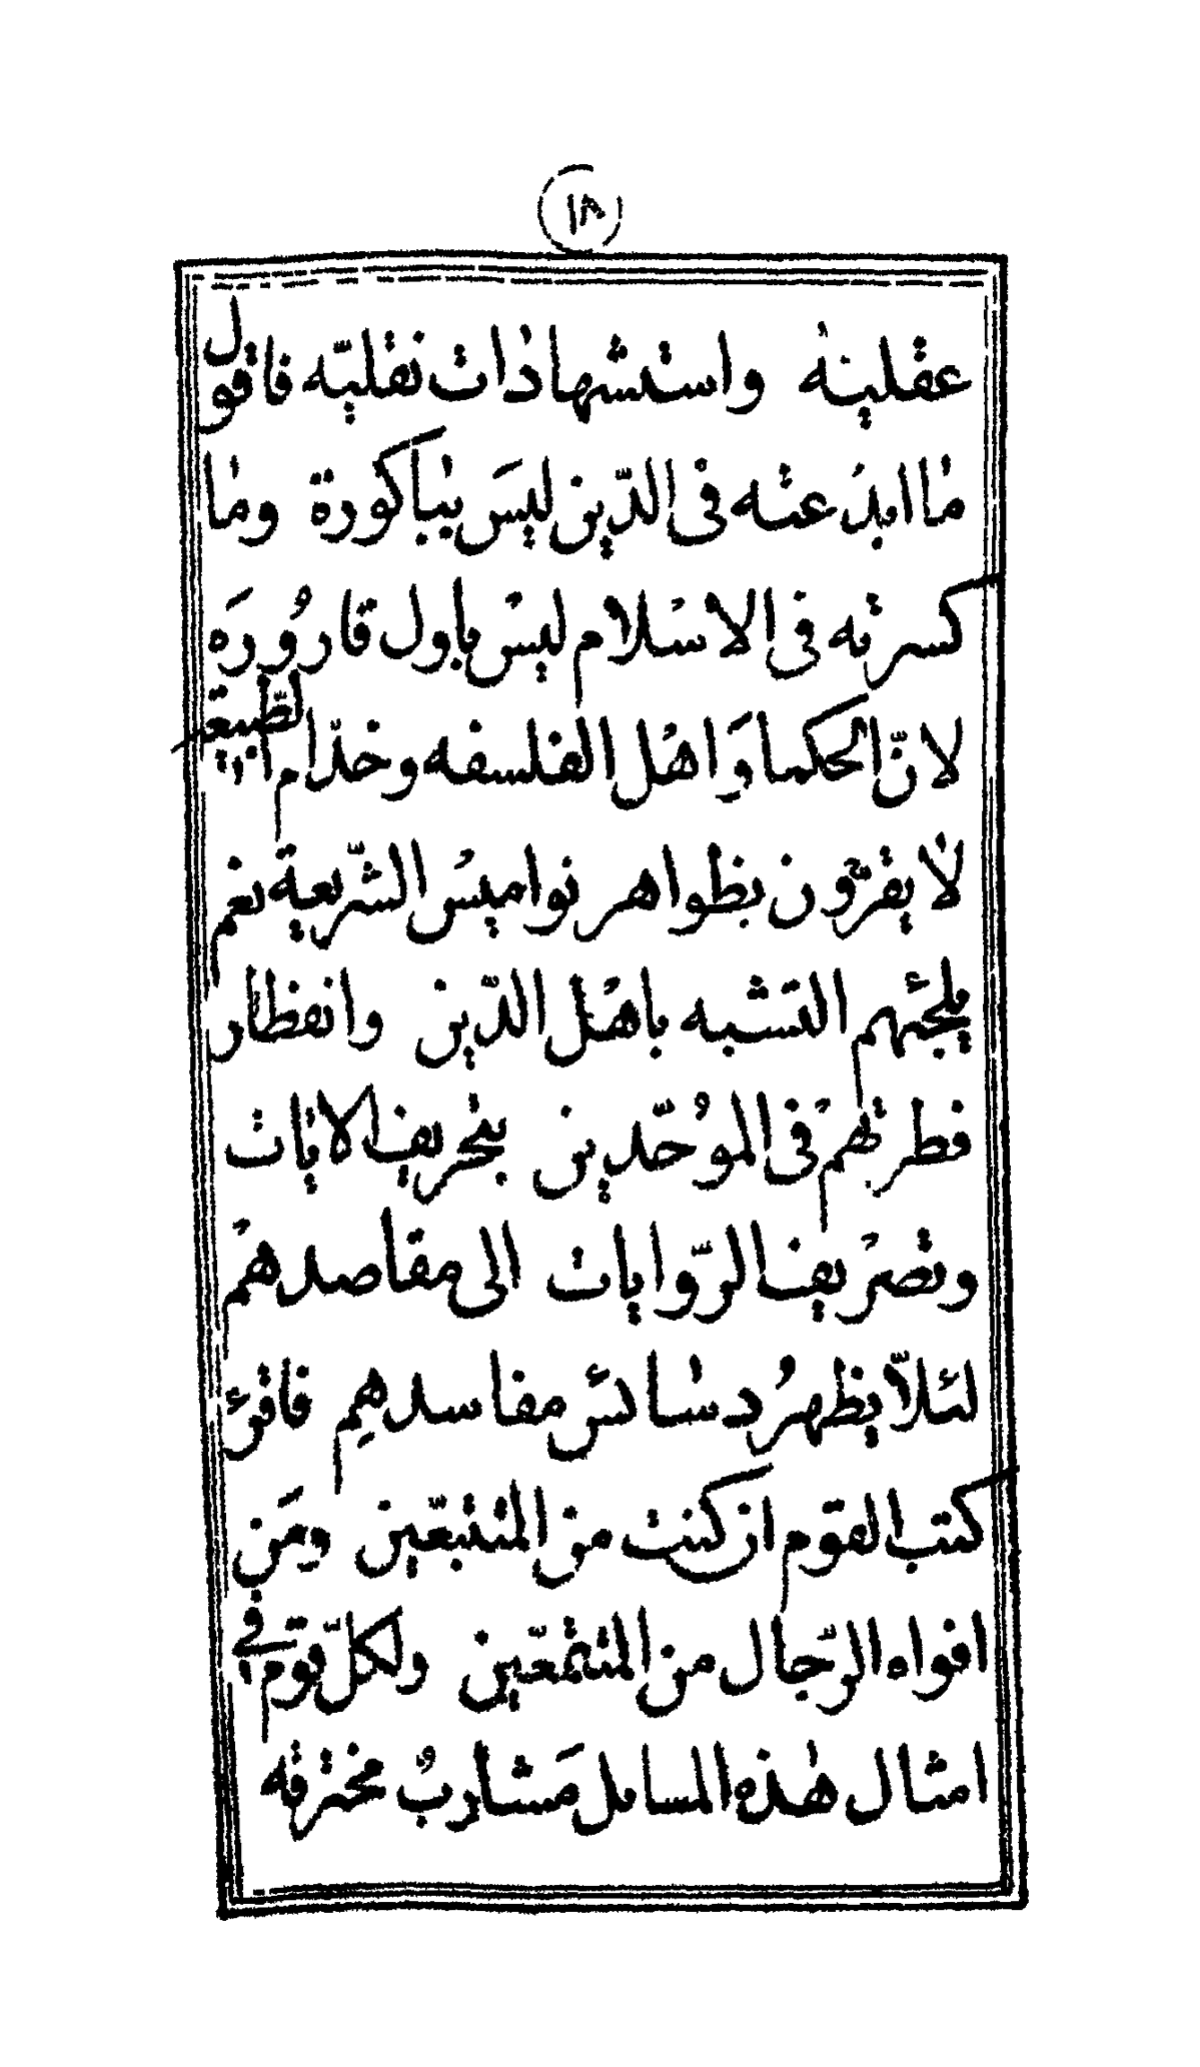 ١٨
عقلينه واستشهادات نقليّه فاقول
ما ابدعته فى الدّين ليسَ بباكورة وما
كسرته فى الاسْلام ليسْ باول قارُورَه
لانّ الحكما وَاهْل الفلسفه وخدّام الطّبيعة
لا يقرّون بظواهر نواميسْ الشّريعة نعم
يلجئهم التشبه باهْل الدّين وانفظار
فطرتهمْ فى الموُحّدين بتحريف الايات
وتصرْيف الرّوايات الى مقاصدهمْ
لئلاّ يظهرُ دسائس مفاسدهِم فاقرئ
كتب القوم ان كنت من المتتبعّين ومَن
افواه الرّجال من المتمتّعين ولكلّ قوم فى
امثال هٰذه المسايل مَشاربُ مخترقه